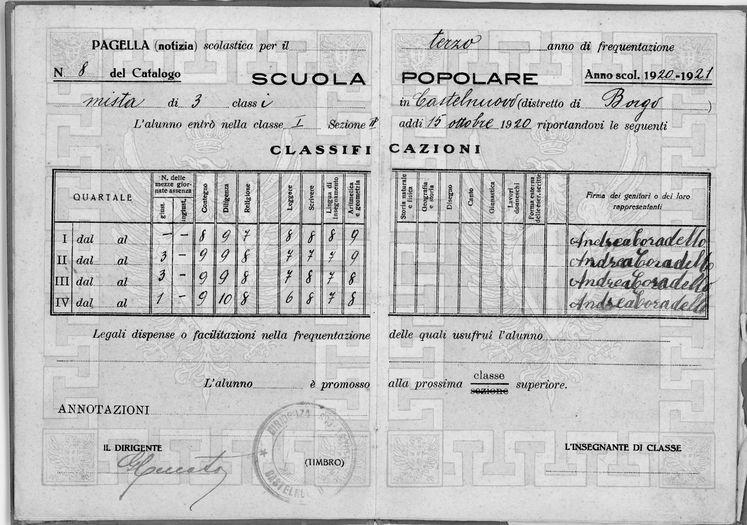 PAGELLA (notizia) scolastica per il terzo anno di frequentazione
N 8 del Catalogo SCUOLA POPOLARE Anno scol. 1920-1921
mista di 3 classi in Castelnuovo (distretto di Borgo)
L'alunno entrò nella classe I Sezione II addì 15 ottobre 1920 riportandovi le seguenti
CLASSIFICAZIONI
QUARTALE N. delle mezze giornate assenza giust. ingiust. Contegno Diligenza Religione Leggere Scrivere Lingua di insegnamento Aritmetica e geometria Storia naturale e fisica Geografia e storia Disegno Canto Ginnastica Lavori donneschi Forma esterna delle eserc. scritte Firma dei genitori o dei loro rappresentanti
I dal al - - 8 9 7 8 8 8 9 Andrea Coradello
II dal al 3 - 9 9 8 7 7 7 9 Andrea Coradello
III dal al 3 - 9 9 8 7 8 7 8 Andrea Coradello
IV dal al 1 - 9 10 8 6 8 7 8 Andrea Coradello
Legali dispense o facilitazioni nella frequentazione delle quali usufruì l'alunno
L'alunno è promosso alla prossima classe sezione superiore.
ANNOTAZIONI
IL DIRIGENTE (TIMBRO) L'INSEGNANTE DI CLASSE